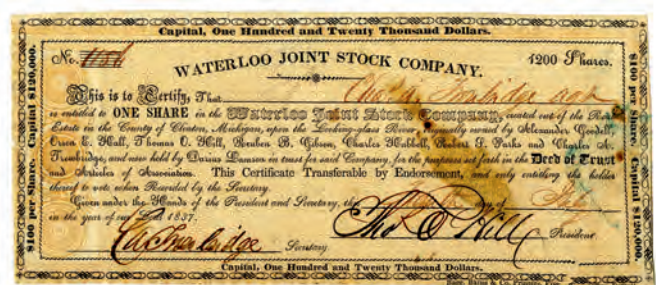 Capital, One Hundred and Twenty Thousand Dollars.
No. 1200 Shares.
WATERLOO JOINT STOCK COMPANY.
This is to Certify, That Chas. A. Trowbridge agt
is entitled to ONE SHARE in the Waterloo Joint Stock Company, created out of the Real
Estate in the County of Clinton, Michigan, upon the Looking-glass River, originally owned by Alexander Goodell,
Orson E. Hall, Thomas O. Hill, Reuben B. Gibson, Charles Hubbell, Robert T. Parks and Charles A.
Trowbridge, and now held by Darius Lamson in trust for said Company, for the purposes set forth in the Deed of Trust
and Articles of Association. This Certificate Transferable by Endorsement, and only entitling the holder
thereof to vote when Recorded by the Secretary.
Given under the Hands of the President and Secretary, the day of
in the year of our Lord 1837.
Tho O Hill President.
C A Trowbridge Secretary.
Capital, One Hundred and Twenty Thousand Dollars.
$100 per Share. Capital $120,000.
$100 per Share. Capital $120,000.